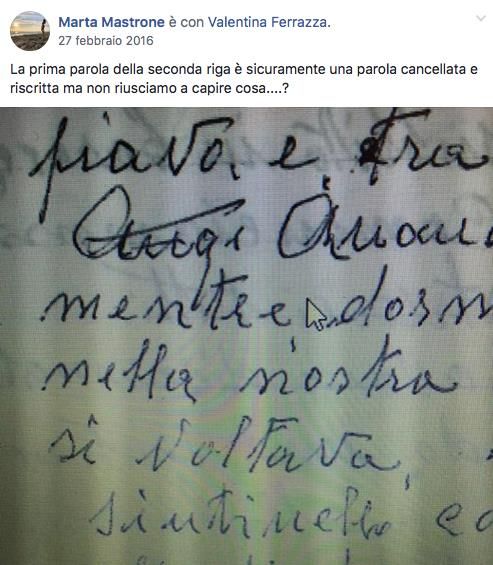 Marta Mastrone è con Valentina Ferrazza.
27 febbraio 2016
La prima parola della seconda riga è sicuramente una parola cancellata e
riscritta ma non riusciamo a capire cosa....?
piavo, e, tra
mentre, dorm
nella nostra
si voltava,
sentinella ed